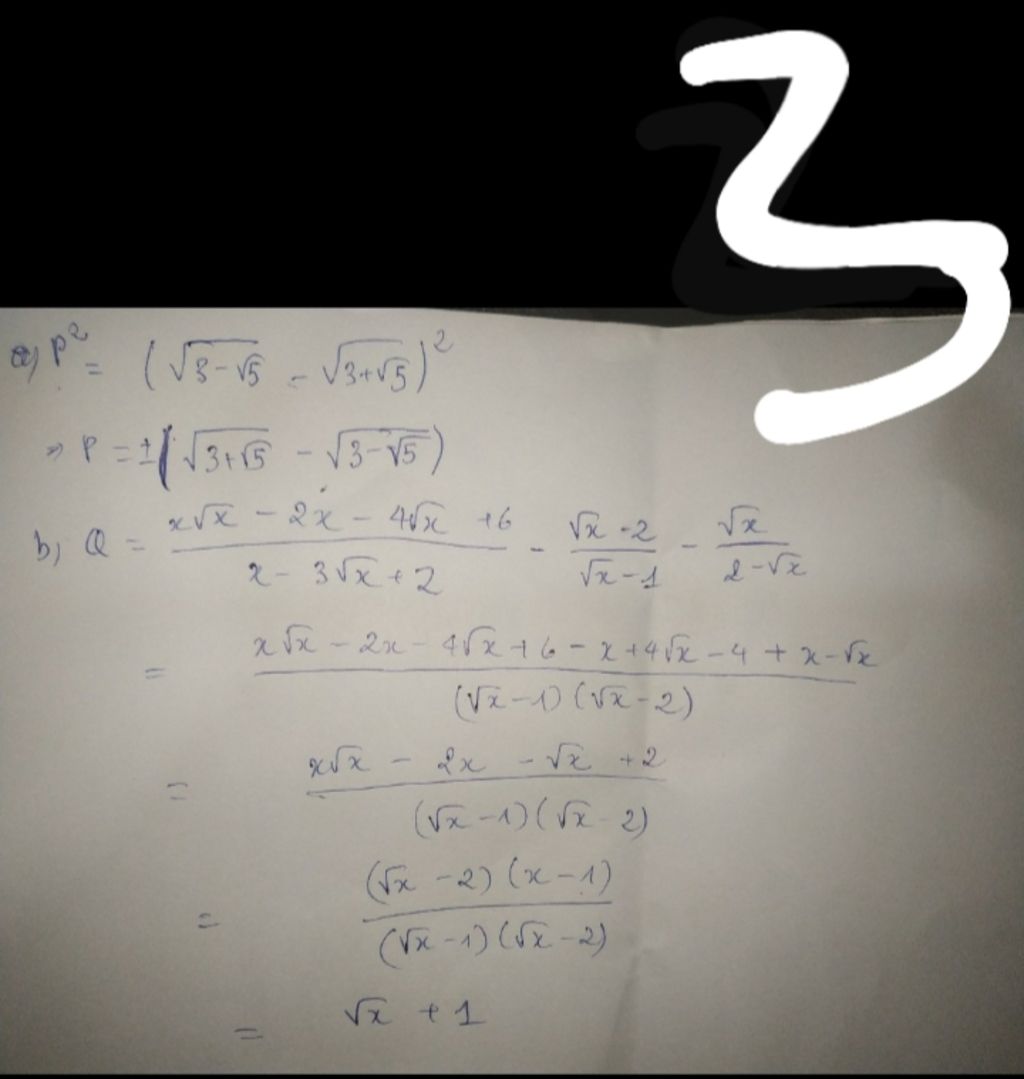 3
a) P² = (√(3-√5) - √(3+√5))²
=> P = ±(√(3+√5) - √(3-√5))
b, Q = (x√x - 2x - 4√x + 6)/(x - 3√x + 2) - (√x - 2)/(√x - 1) - √x/(2 - √x)
= (x√x - 2x - 4√x + 6 - x + 4√x - 4 + x - √x)/((√x - 1)(√x - 2))
= (x√x - 2x - √x + 2)/((√x - 1)(√x - 2))
= ((√x - 2)(x - 1))/((√x - 1)(√x - 2))
= √x + 1